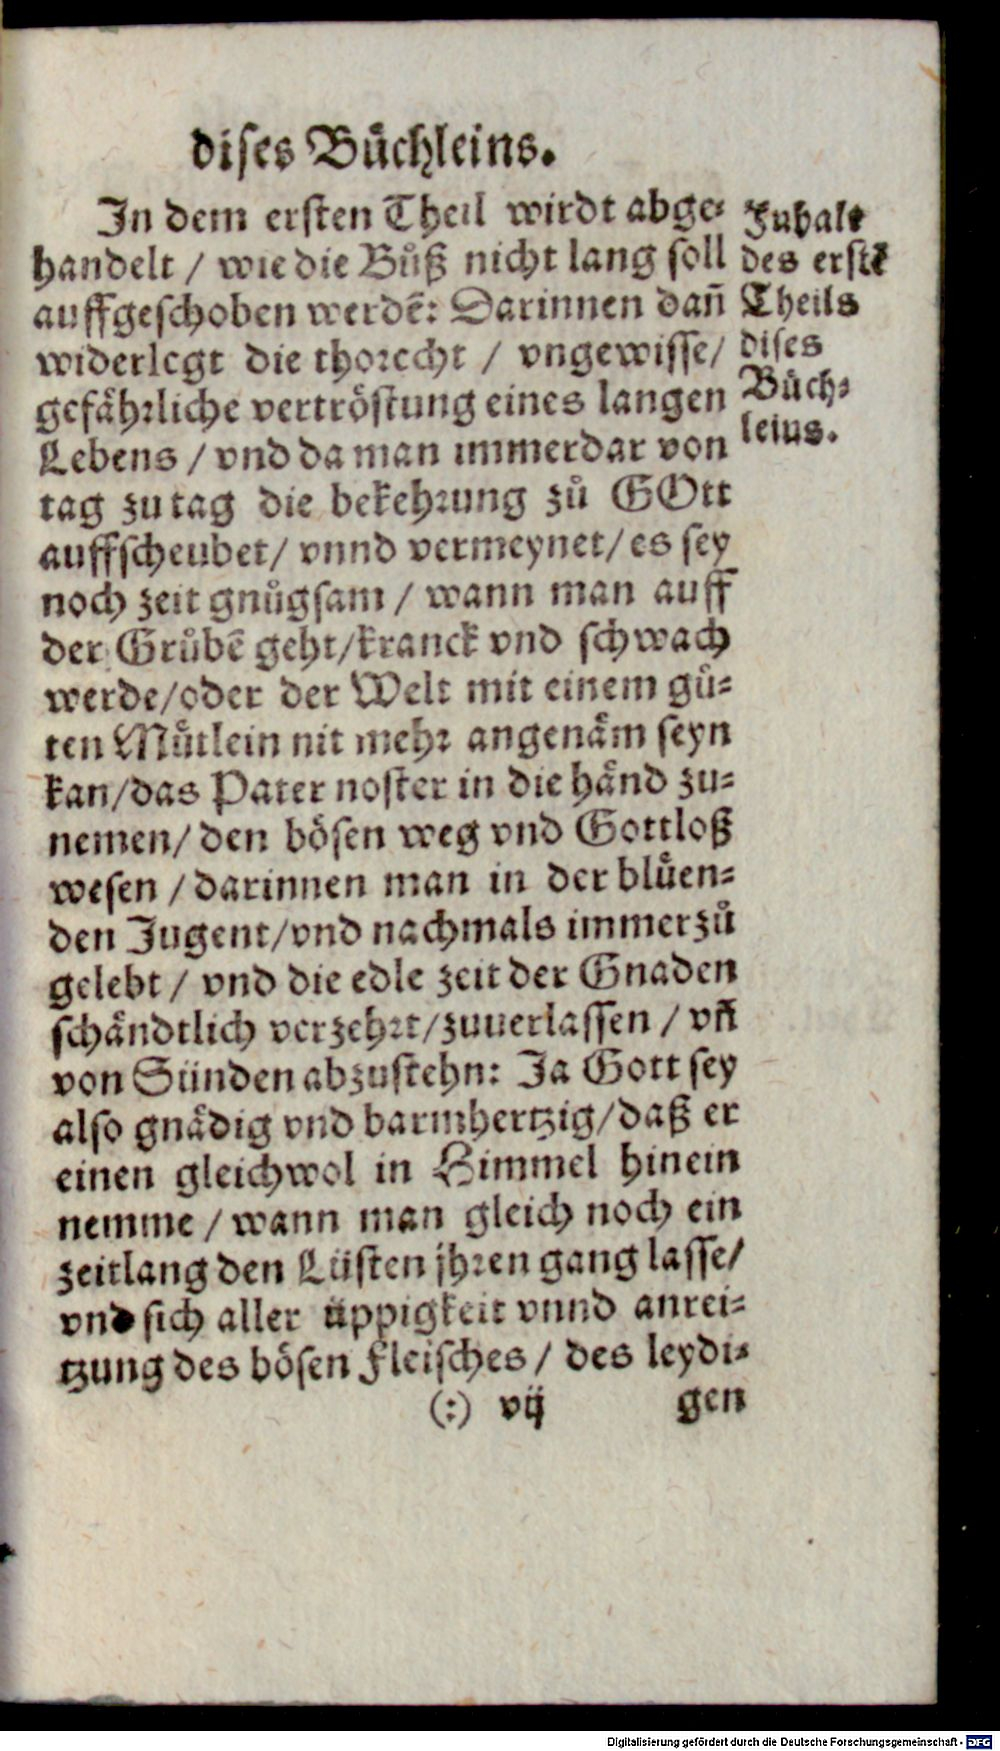 dises Bůchleins.
In dem ersten Theil wirdt abge-
handelt / wie die Bůß nicht lang soll
auffgeschoben werdē: Darinnen dañ
widerlegt die thorecht / vngewisse/
gefåhrliche vertröstung eines langen
Lebens / vnd da man immerdar von
tag zu tag die bekehrung zů GOtt
auffscheubet/ vnnd vermeynet/ es sey
noch zeit gnůgsam / wann man auff
der Grůbē geht/kranck vnd schwach
werde/oder der Welt mit einem gů-
ten Můtlein nit mehr angenåm seyn
kan/das Pater noster in die hånd zu-
nemen/ den bösen weg vnd Gottloß
wesen / darinnen man in der blůen-
den Jugent/vnd nachmals immerzů
gelebt / vnd die edle zeit der Gnaden
schåndtlich verzehrt/zuuerlassen / vñ
von Sünden abzustehn: Ja Gott sey
also gnådig vnd barmhertzig/daß er
einen gleichwol in Himmel hinein
nemme / wann man gleich noch ein
zeitlang den Lüsten jhren gang lasse/
vnd sich aller üppigkeit vnnd anrei-
tzung des bösen Fleisches / des leydi-
(:) vij gen
Inhalt
des erstē
Theils
dises
Bůch-
leins.
Digitalisierung gefördert durch die Deutsche Forschungsgemeinschaft - DFG